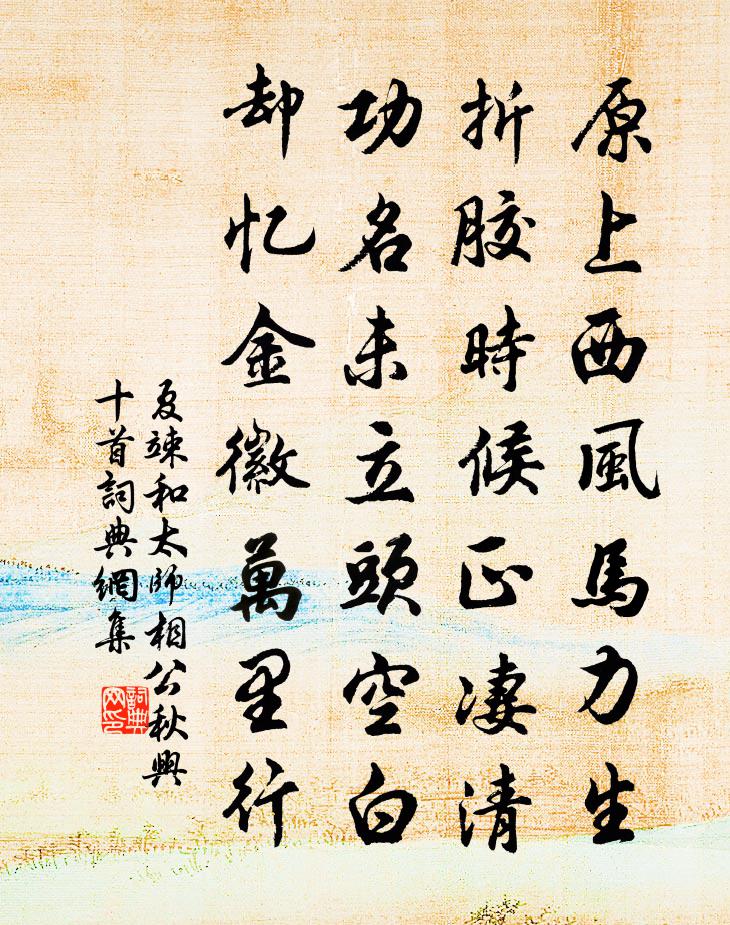 原上西風馬力生
折胶時候正凄清
功名未立頭空白
却忆金徽萬里行
夏竦和太师相公秋興
十首詞典網集
詞典网印